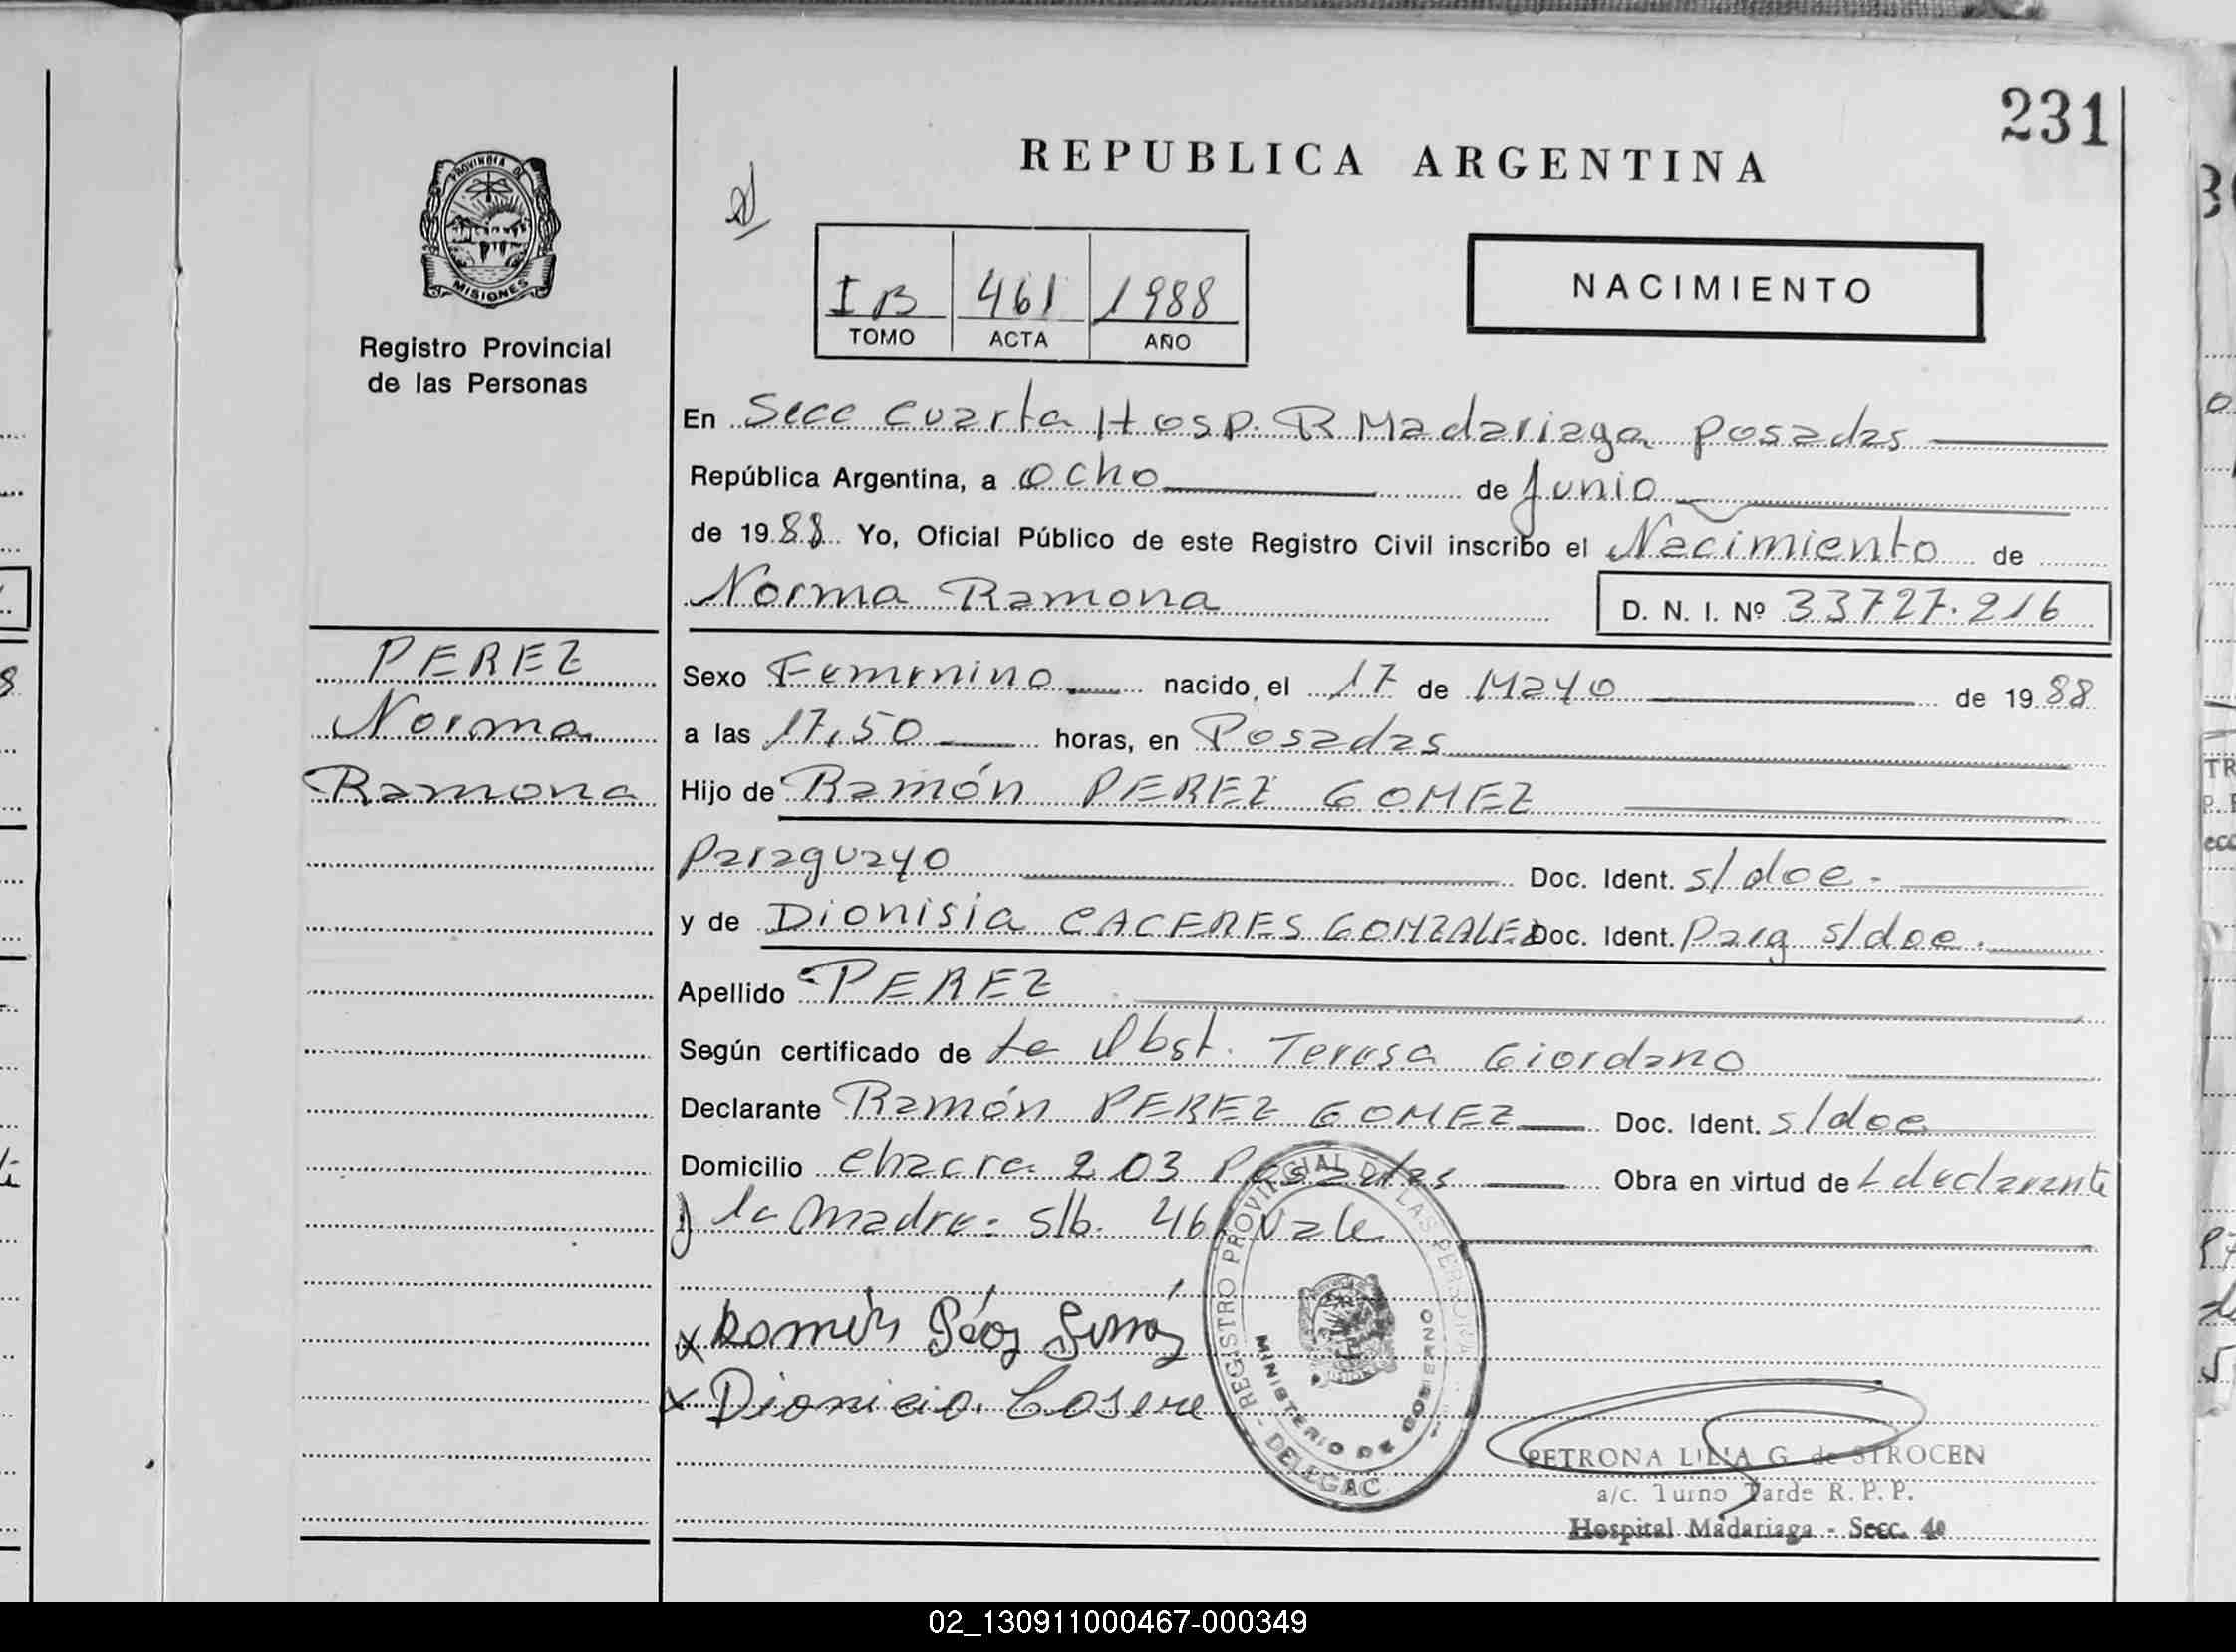 231
REPUBLICA ARGENTINA
PROVINCIA DE
MISIONES
Registro Provincial
de las Personas
I B 461 1988
TOMO ACTA AÑO
NACIMIENTO
En Secc Cuarta Hosp. R Madariaga Posadas
República Argentina, a Ocho de Junio
de 1988 Yo, Oficial Público de este Registro Civil inscribo el Nacimiento de
Norma Ramona D. N. I. Nº 33727.216
PEREZ
Norma
Ramona
Sexo Femenino nacido, el 17 de Mayo de 1988
a las 17,50 horas, en Posadas
Hijo de Ramón PEREZ GOMEZ
Paraguayo Doc. Ident. s/doc.
y de Dionisia CACERES GONZALEZ Doc. Ident. Parg s/doc.
Apellido PEREZ
Según certificado de La Obst. Teresa Giordano
Declarante Ramón PEREZ GOMEZ Doc. Ident. s/doc
Domicilio chacra 203 Posadas Obra en virtud de L declarante
y la madre: s/b. 46 Vale
Ramón
Dionicia
REGISTRO PROVINCIAL DE LAS PERSONAS - DELEGAC
MINISTERIO DE GOBIERNO
PETRONA LILIA G. de STROCEN
a/c. Turno Tarde R. P. P.
Hospital Madariaga - Secc. 4ª
02_130911000467-000349